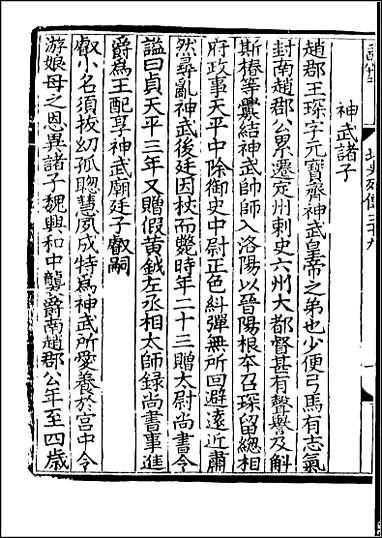 神武諸子
趙郡王琛字元寶齊神武皇帝之弟也少便弓馬有志氣
封南趙郡公累遷定州刺史六州大都督甚有聲譽及斛
斯椿等釁結神武帥師入洛陽以晉陽根本召琛留緫相
府政事天平中除御史中尉正色糾彈無所回避遠近肅
然尋亂神武後廷因杖而斃時年二十三贈太尉尚書令
謚曰貞天平三年又贈假黃鉞左丞相太師錄尚書事進
爵爲王配享神武廟廷子叡嗣
叡小名須拔幼孤聰慧夙成特爲神武所愛養於宮中令
游娘母之恩異諸子魏興和中襲爵南趙郡公年至四歲